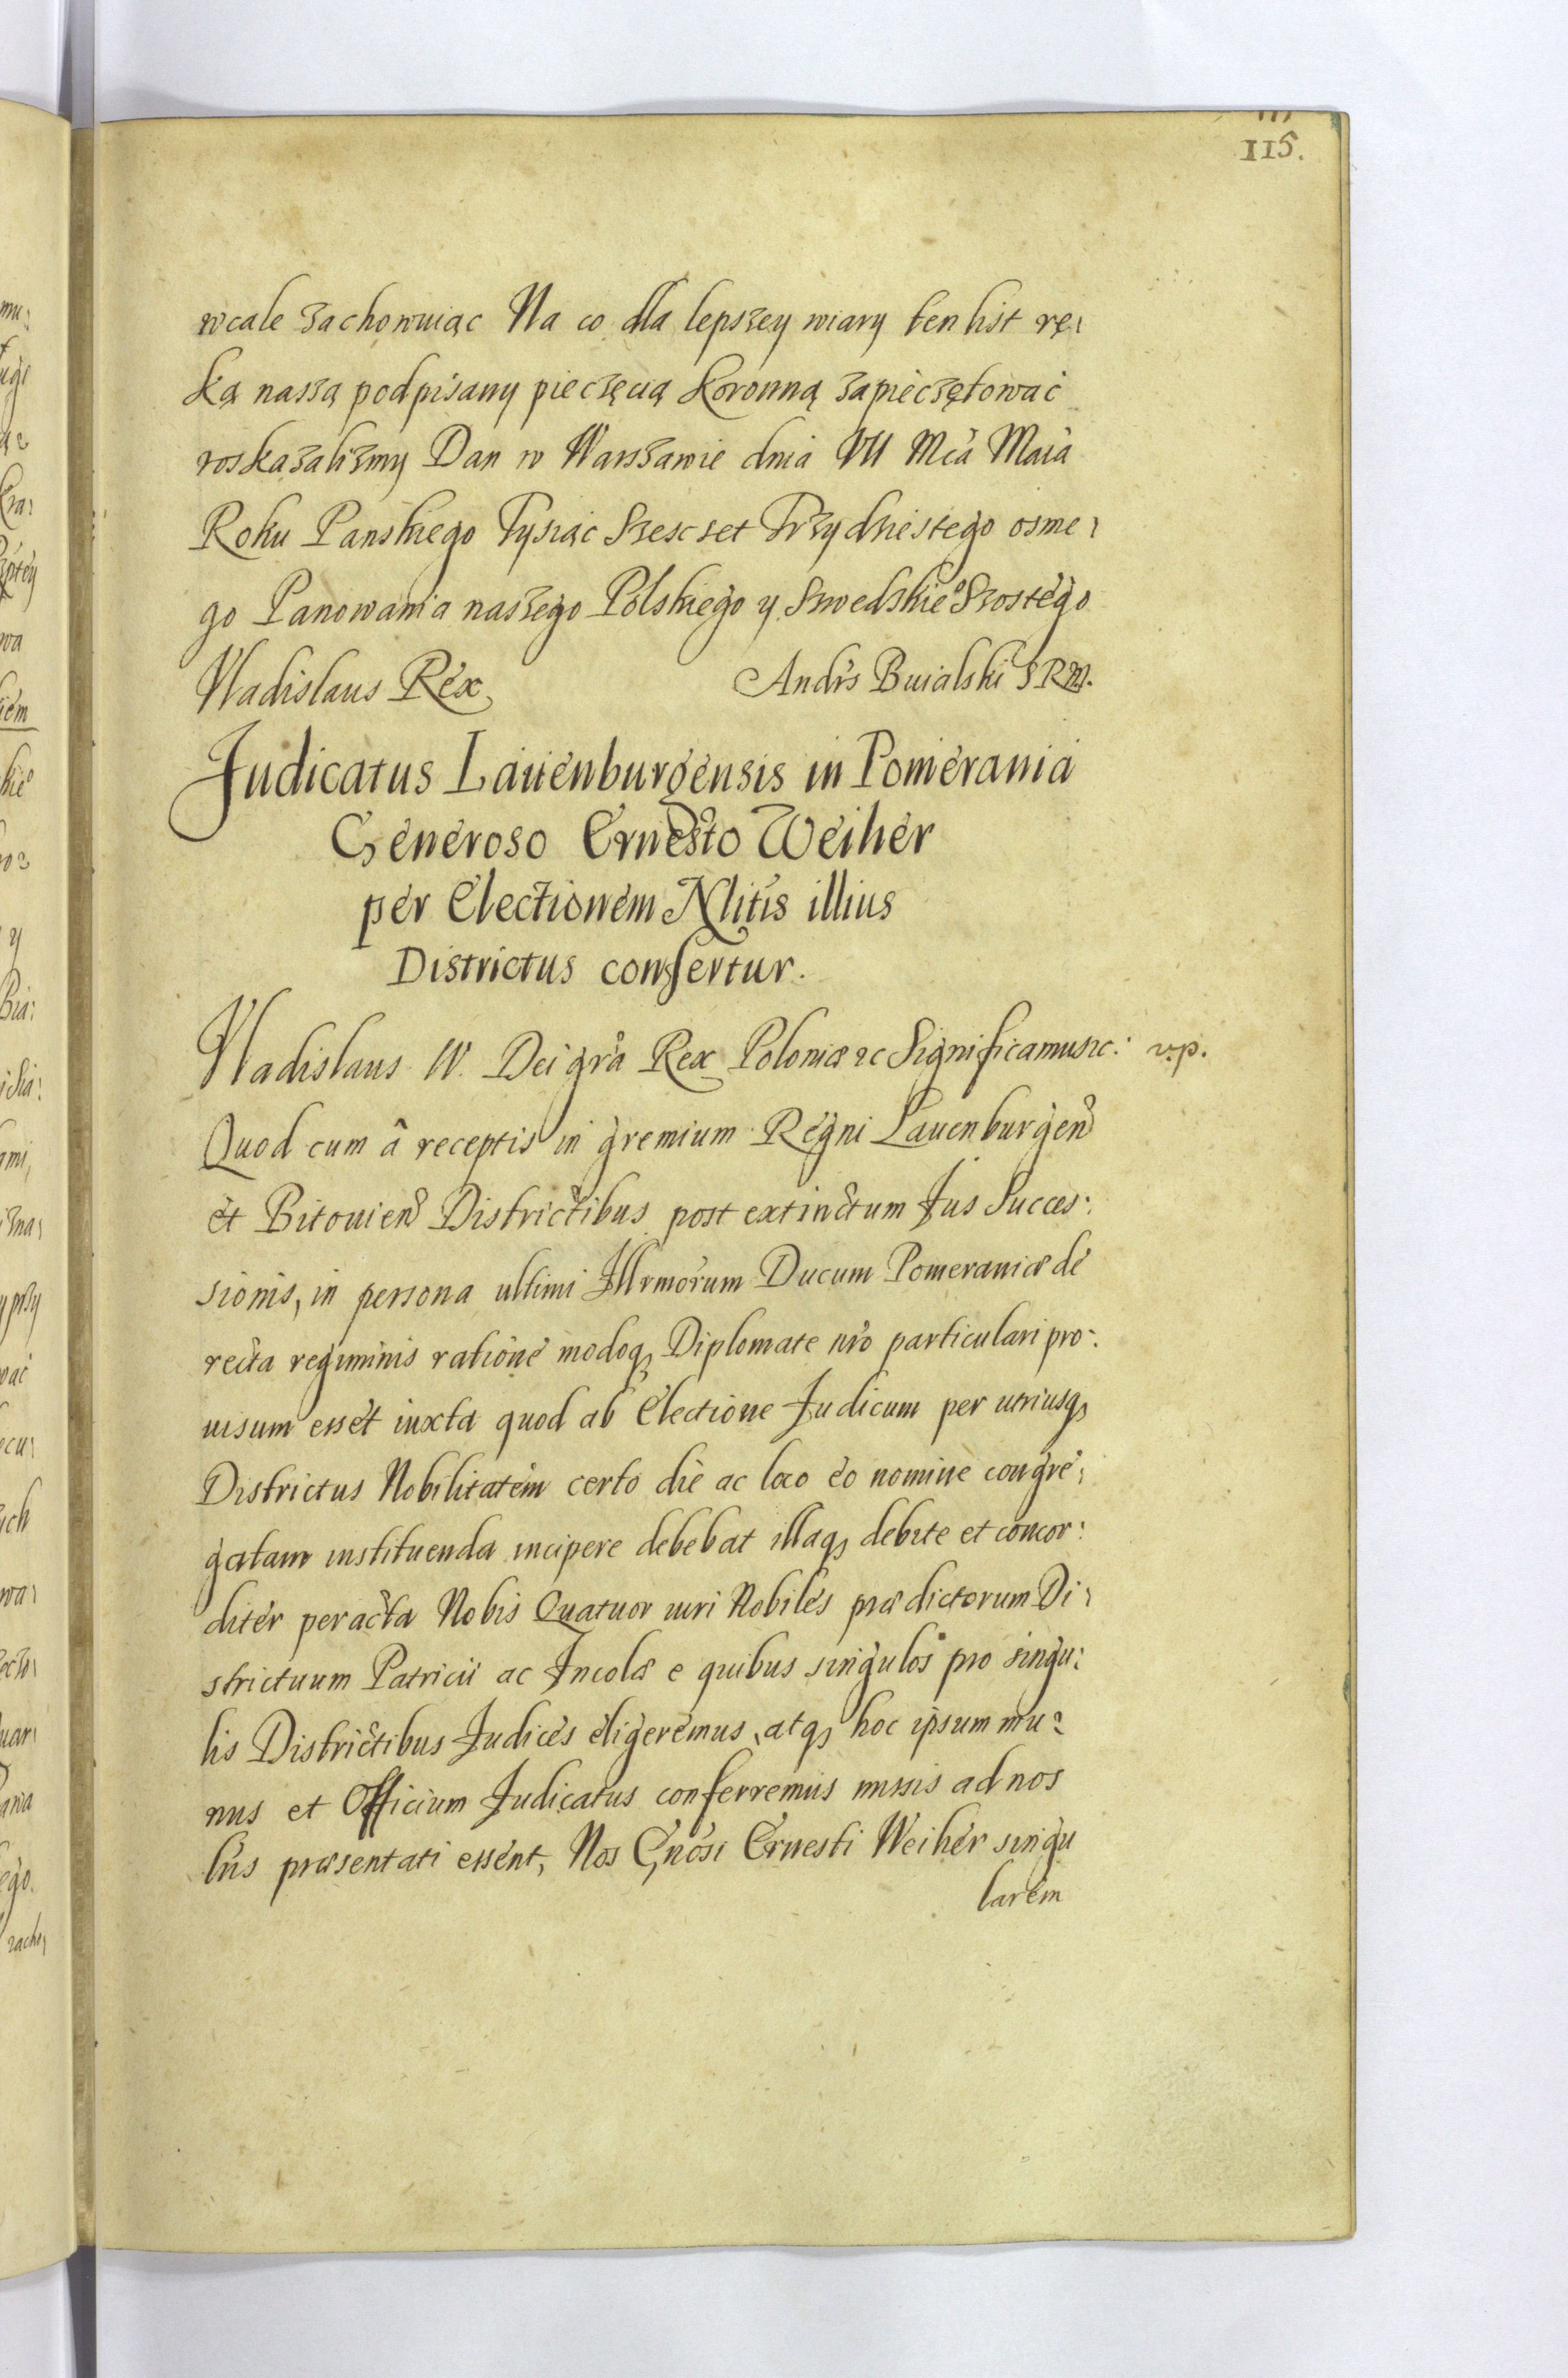 115.
wcale zachowuiąc Na co dla lepszey wiary ten list rę:
ką naszą podpisany pieczęcią Koronną zapieczętować
roskazalizmy Dan w Warszawie dnia VII Mcà Maia
Roku Panskiego Tysiąc Szescset Trzydziestego osme:
go Panowania naszego Polskiego y Szwedskieº Szostego
Vladislaus Rex
Andrs Buialski SRM.
Judicatus Lauenburgensis in Pomerania
Generoso Ernesto Weiher
per Electionem Nlitis illius
Districtus confertur.
Vladislaus IV. Dei gra Rex Poloniæ &c Significamus &c:
v.p.
Quod cum â receptis in gremium Regni Lauenburgen
et Bitouien Districtibus post extinctum Jus Succes:
sionis, in persona ultimi Illrmorum Ducum Pomeraniæ de
recta regiminis ratione modoq, Diplomate nro particulari pro:
uisum esset iuxta quod ab Electione Judicum per utriusq,
Districtus Nobilitatem certo die ac loco eo nomine congre:
gatam instituenda incipere debebat illaq, debite et concor:
diter peracta Nobis Quatuor viri Nobiles prædictorum Di:
strictuum Patricii ac Incolæ e quibus singulos pro singu:
lis Districtibus Judices eligeremus, atq, hoc ipsum mu:
nus et Officium Judicatus conferremus missis ad nos
lris præsentati essent, Nos Gnosi Ernesti Weiher singu
larem